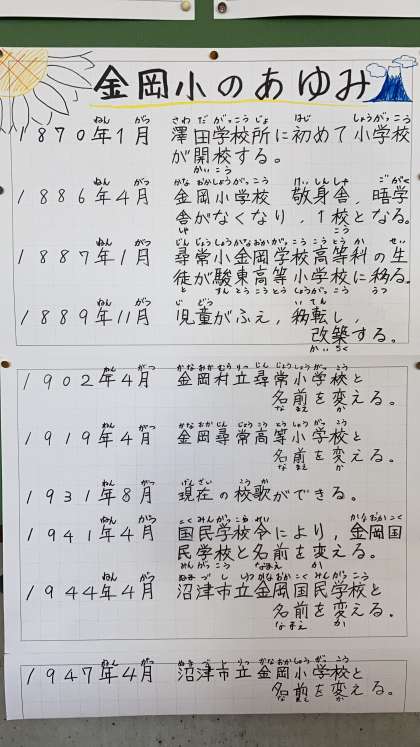 金岡小のあゆみ
1870年1月 澤田学校所に初めて小学校
が開校する。
1886年4月 金岡小学校 敬身舎，晤学
舎がなくなり，1校となる。
1887年1月 尋常小金岡学校高等科の生
徒が駿東高等小学校に移る。
1889年11月 児童がふえ，移転し，
改築する。
1902年4月 金岡村立尋常小学校と
名前を変える。
1919年4月 金岡尋常高等小学校と
名前を変える。
1931年8月 現在の校歌ができる。
1941年4月 国民学校令により，金岡国
民学校と名前を変える。
1944年4月 沼津市立金岡国民学校と
名前を変える。
1947年4月 沼津市立金岡小学校と
名前を変える。